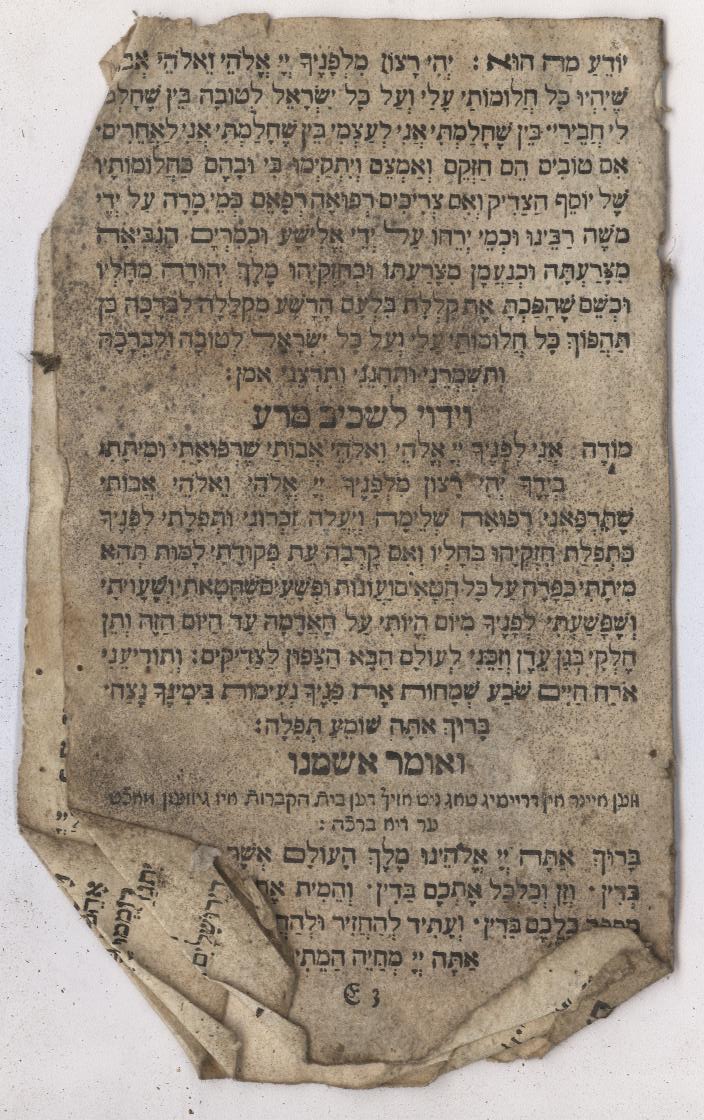 יוֹדֵעַ מַה הוּא: יְהִי רָצוֹן מִלְּפָנֶיךָ יְיָ אֱלֹהַי וֵאלֹהֵי
שֶׁיִּהְיוּ כָּל חֲלוֹמוֹתַי עָלַי וְעַל כָּל יִשְׂרָאֵל לְטוֹבָה בֵּין
לִי חֲבֵירַי בֵּין שֶׁחָלַמְתִּי אֲנִי לְעַצְמִי בֵּין שֶׁחָלַמְתִּי אֲנִי לַאֲחֵרִים
אִם טוֹבִים הֵם חַזְּקֵם וְאַמְּצֵם וְיִתְקַיְּמוּ בִּי וּבָהֶם כַּחֲלוֹמוֹתָיו
שֶׁל יוֹסֵף הַצַּדִּיק וְאִם צְרִיכִים רְפוּאָה רְפָאֵם כְּמֵי מָרָה עַל יְדֵי
מֹשֶׁה רַבֵּינוּ וּכְמֵי יְרֵחוֹ עַל יְדֵי אֱלִישָׁע וּכְמִרְיָם הַנְּבִיאָה
מִצָּרַעְתָּהּ וּכְנַעֲמָן מִצָּרַעְתּוֹ וּכְחִזְקִיָּהוּ מֶלֶךְ יְהוּדָה מֵחָלְיוֹ
וּכְשֵׁם שֶׁהָפַכְתָּ אֶת קִלְלַת בִּלְעָם הָרָשָׁע מִקְּלָלָה לִבְרָכָה כֵּן
תַּהֲפוֹךְ כָּל חֲלוֹמוֹתַי עָלַי וְעַל כָּל יִשְׂרָאֵל לְטוֹבָה וְלִבְרָכָה
וְתִשְׁמְרֵנִי וּתְחָנֵּנִי וְתִרְצֵנִי אמן:
וידוי לשכיב מרע
מוֹדֶה אֲנִי לְפָנֶיךָ יְיָ אֱלֹהַי וֵאלֹהֵי אֲבוֹתַי שֶׁרְפוּאָתִי וּמִיתָתִי
בְּיָדְךָ יְהִי רָצוֹן מִלְּפָנֶיךָ יְיָ אֱלֹהַי וֵאלֹהֵי אֲבוֹתַי
שֶׁתִּרְפָּאֵנִי רְפוּאָה שְׁלֵימָה וְיַעֲלֶה זִכְרוֹנִי וּתְפִלָּתִי לְפָנֶיךָ
כִּתְפִלַּת חִזְקִיָּהוּ בְּחָלְיוֹ וְאִם קָרְבָה עֵת פְּקוּדָתִי לָמוּת תְּהֵא
מִיתָתִי כַּפָּרָה עַל כָּל חֲטָאִים וַעֲוֹנוֹת וּפְשָׁעִים שֶׁחָטָאתִי וְשֶׁעָוִיתִי
וְשֶׁפָּשַׁעְתִּי לְפָנֶיךָ מִיּוֹם הֱיוֹתִי עַל הָאֲדָמָה עַד הַיּוֹם הַזֶּה וְתֵן
חֶלְקִי בְּגַן עֵדֶן וְזַכֵּנִי לְעוֹלָם הַבָּא הַצָּפוּן לַצַּדִּיקִים: וְתוֹדִיעֵנִי
אֹרַח חַיִּים שֹׂבַע שְׂמָחוֹת אֶת פָּנֶיךָ נְעִימוֹת בִּימִינְךָ נֶצַח:
בָּרוּךְ אַתָּה שׁוֹמֵעַ תְּפִלָּה:
ואומר אשמנו
ווען איינר אין דרייסיג טאג ניט אויף דען בית הקברות איז גיוועזן
ער דיא ברכה:
בָּרוּךְ אַתָּה יְיָ אֱלֹהֵינוּ מֶלֶךְ הָעוֹלָם אֲשֶׁר
בַּדִּין· וְזָן וְכִלְכֵּל אֶתְכֶם בַּדִּין· וְהֵמִית
כֻּלְּכֶם בַּדִּין· וְעָתִיד לְהַחֲזִיר
אַתָּה יְיָ מְחַיֵּה הַמֵּתִי
E 3
ירושלים